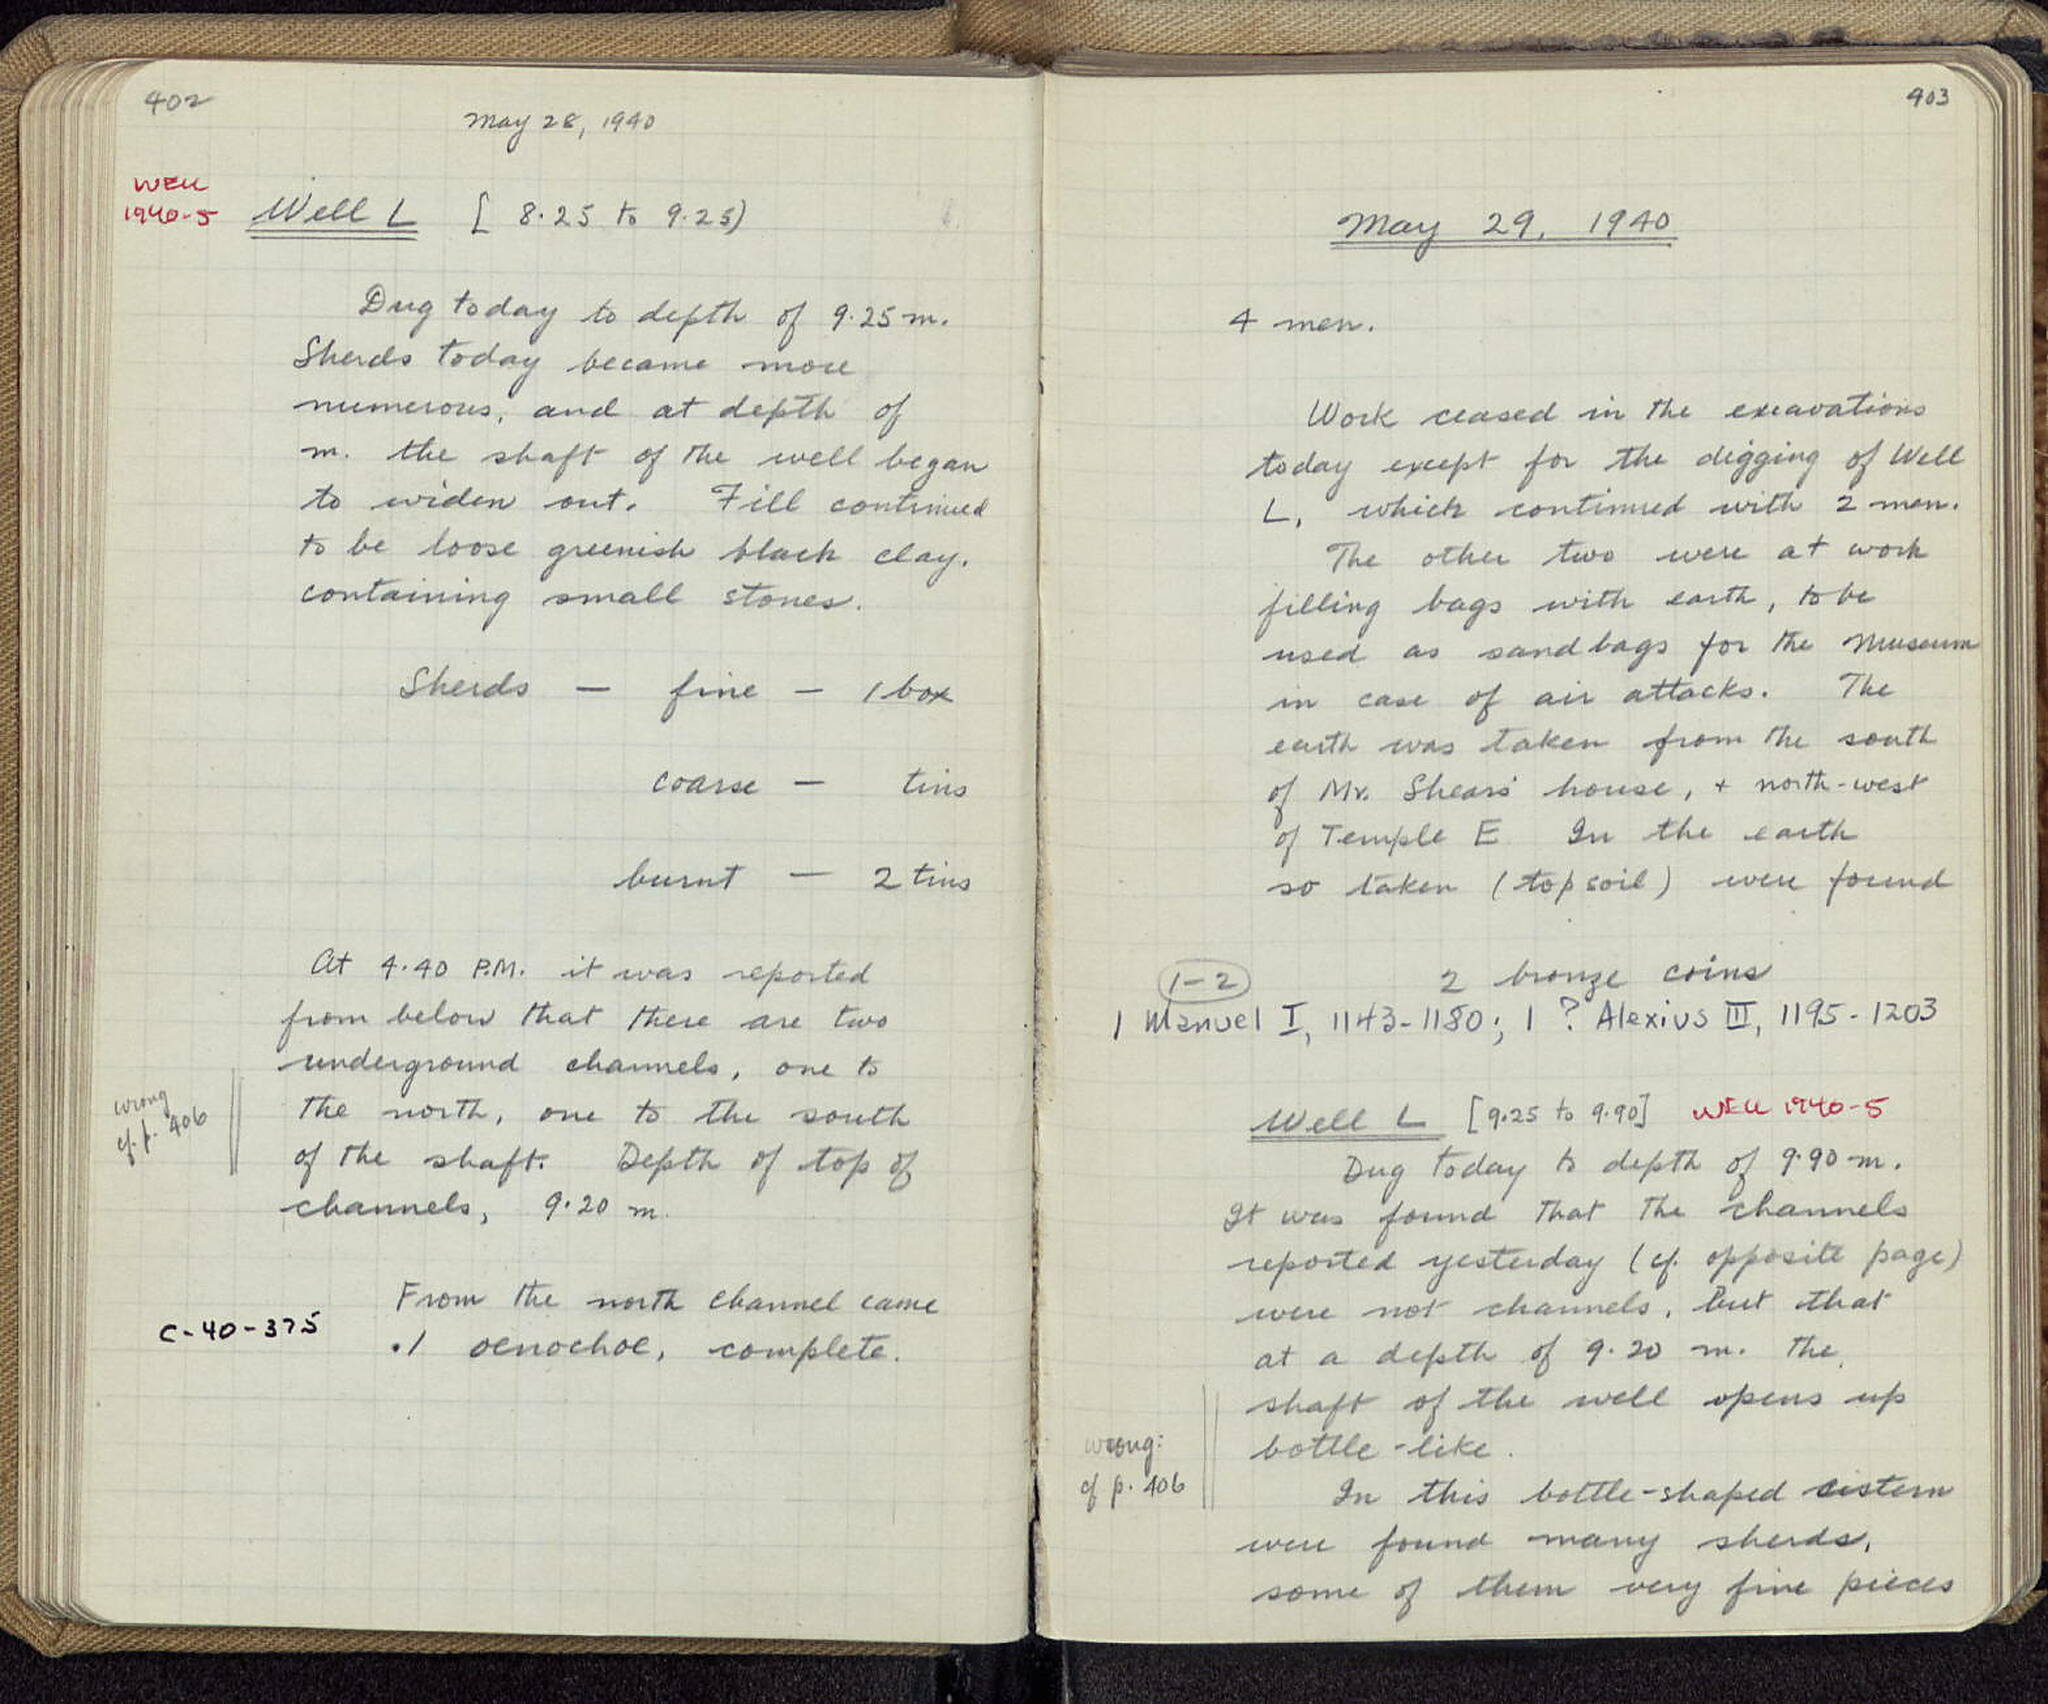 402
May 28, 1940
WELL
1940-5
Well L [ 8.25 to 9.25)
Dug today to depth of 9.25 m.
Sherds today became more
numerous, and at depth of
m. the shaft of the well began
to widen out. Fill continued
to be loose greenish black clay.
containing small stones.
Sherds — fine — 1 box
coarse — tins
burnt — 2 tins
At 4.40 P.M. it was reported
from below that there are two
underground channels, one to
the north, one to the south
of the shaft. Depth of top of
channels, 9.20 m.
wrong
cf. p. 406
From the north channel came
C-40-375
.1 oenochoe, complete.
403
May 29, 1940
4 men.
Work ceased in the excavations
today except for the digging of Well
L, which continued with 2 men.
The other two were at work
filling bags with earth, to be
used as sandbags for the Museum
in case of air attacks. The
earth was taken from the south
of Mr. Shear's house, + north-west
of Temple E In the earth
so taken (topsoil) were found
1-2 2 bronze coins
1 Manuel I, 1143-1180; 1 ? Alexius III, 1195-1203
Well L [9.25 to 9.90] WELL 1940-5
Dug today to depth of 9.90 m.
It was found that the channels
reported yesterday (cf. opposite page)
were not channels, but that
at a depth of 9.20 m. the
shaft of the well opens up
bottle-like.
wrong:
cf p. 406
In this bottle-shaped cistern
were found many sherds,
some of them very fine pieces